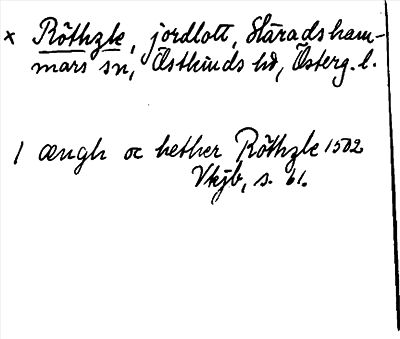 x Röthzle, jordlott, Häradsham-
mars sn, Östkinds hd, Österg. l.
1 ængh oc hether Röthzle 1502
Vkjb, s. 61.